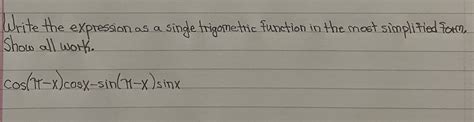 Write the expression as a single trigometric function in the most simplified form.
Show all work.
cos(π-x)cosx-sin(π-x)sinx